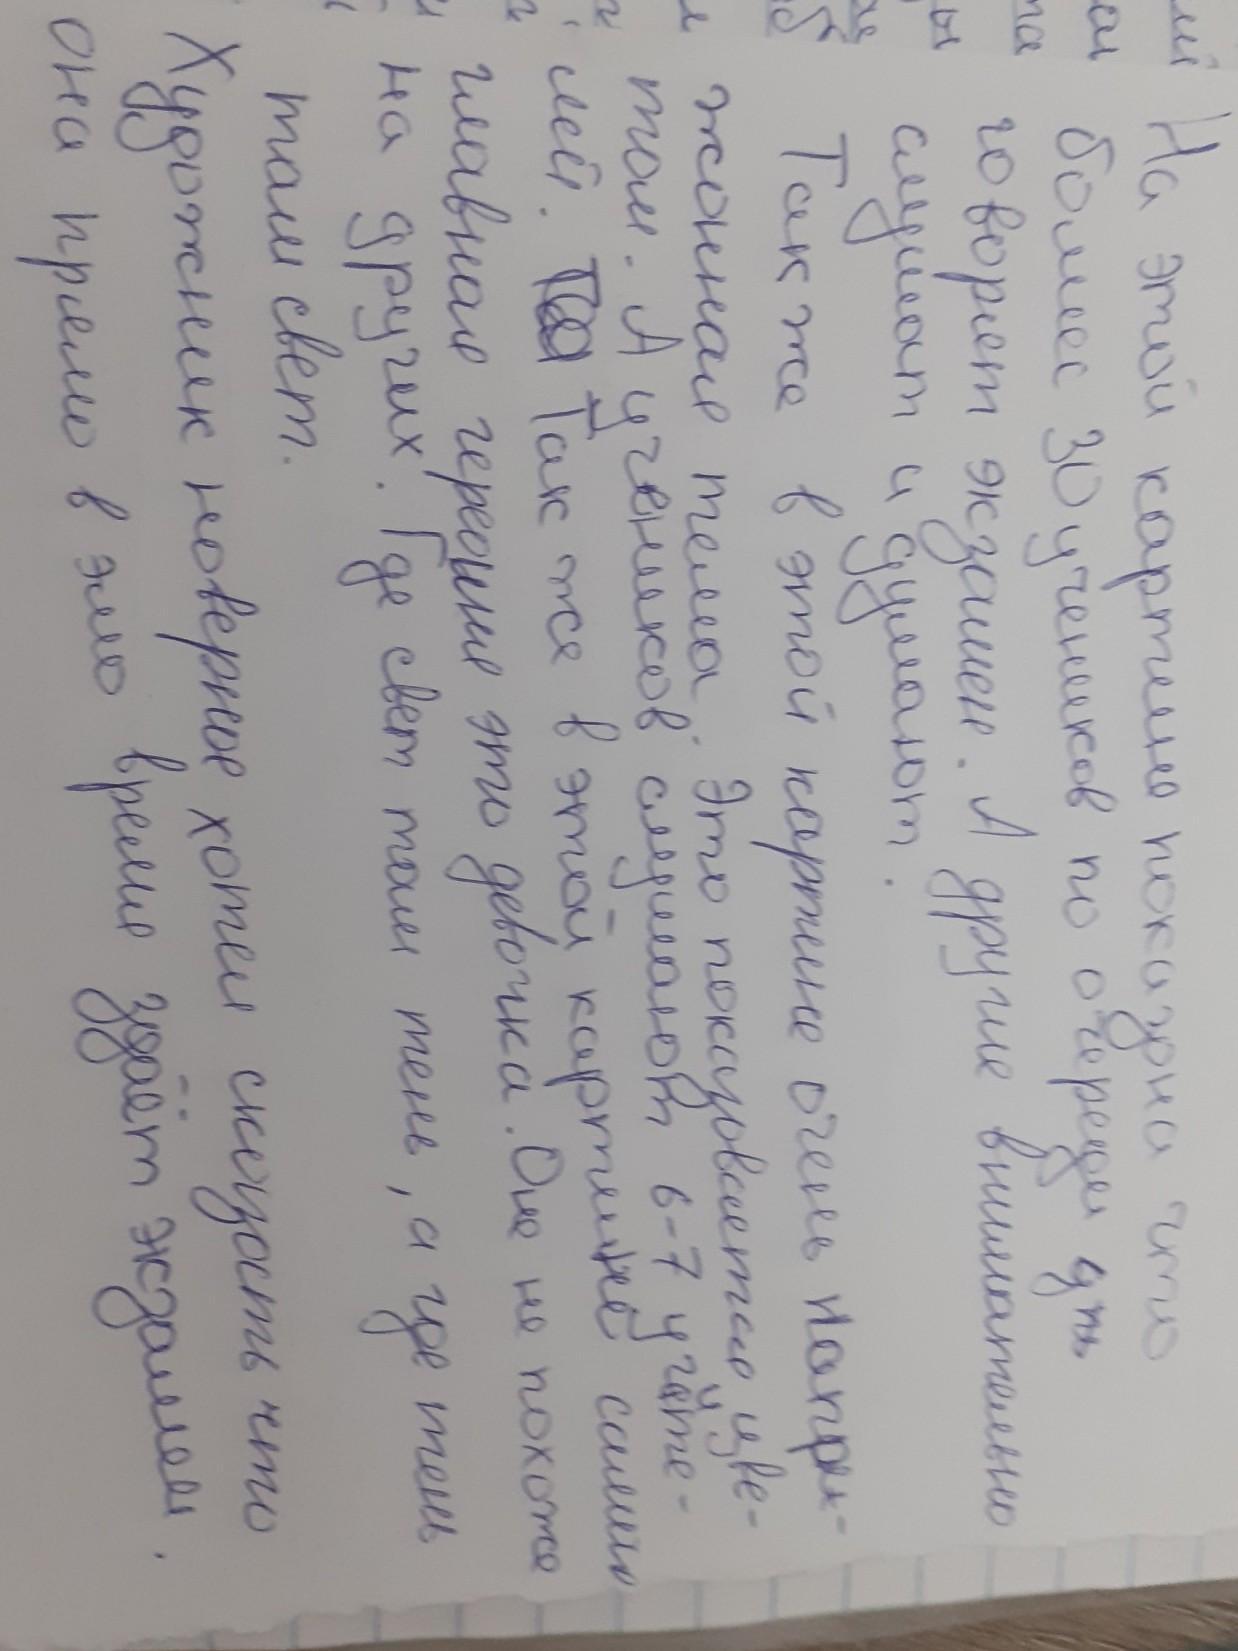 На этой картине показона что
более 30 учеников по очереди дть
говорят экзамен. А другие внимательно
слушают и думают.
Также в этой картине очень напря-
жонная тема. Это показоваеться цве-
том. А учеников слушают 6-7 учите-
лей. Также в этой картине самые
главная героиня это девочка. Она не похожа
на других. Где свет там тень, а где тень
там свет.
Художник новерное хотел сказать что
она прямо в это время здаёт экзамен.